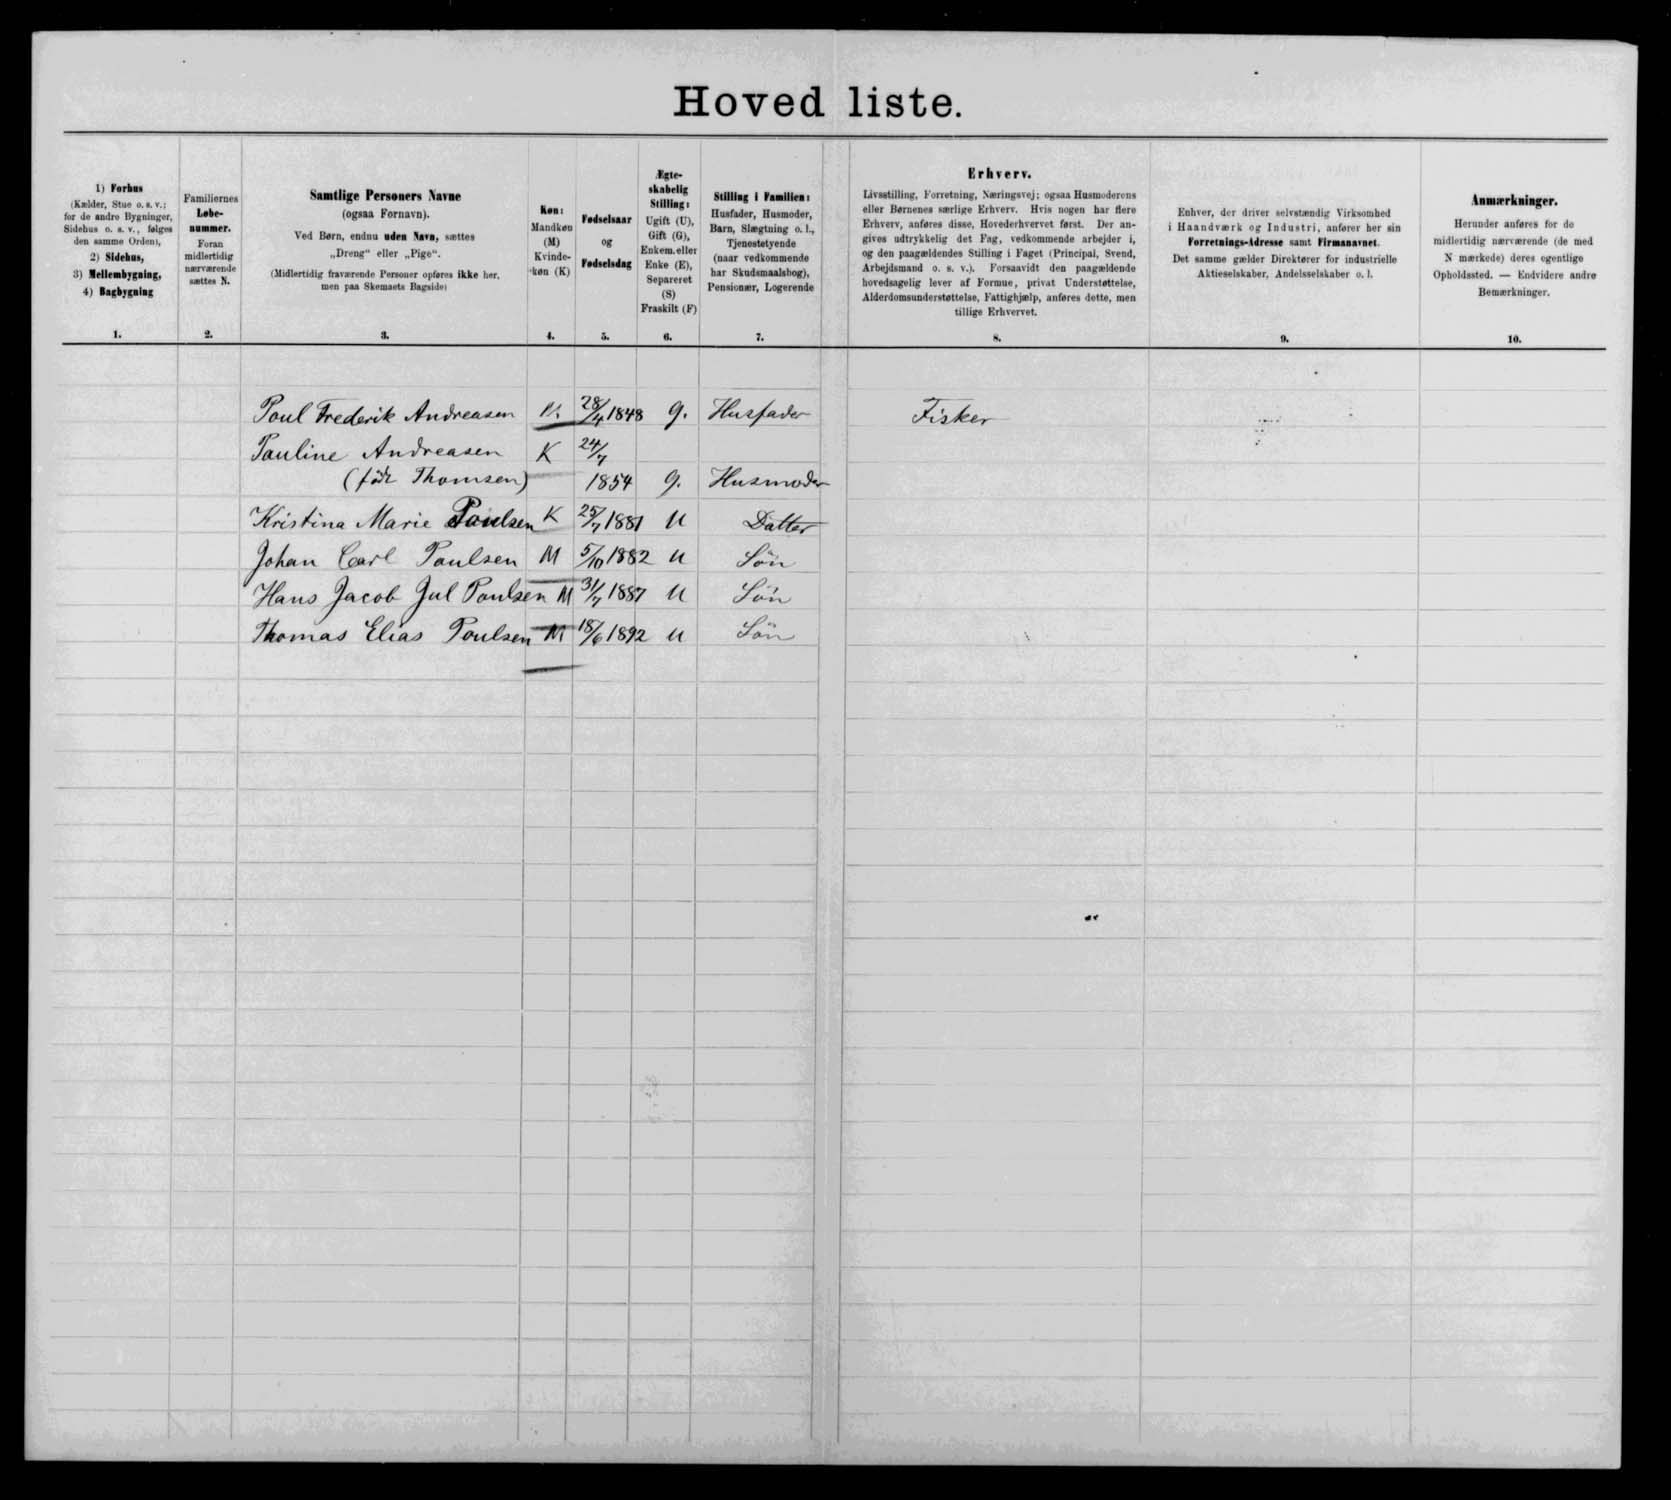 Hoved liste.
1) Forhus
(Kælder, Stue o. s. v.;
for de andre Bygninger,
Sidehus o. s. v., følges
den samme Orden),
2) Sidehus,
3) Mellembygning,
4) Bagbygning
1.
Familiernes
Løbe-
nummer.
Foran
midlertidig
nærværende
sættes N.
2.
Samtlige Personers Navne
(ogsaa Fornavn).
Ved Børn, endnu uden Navn, sættes
„Dreng“ eller „Pige“.
(Midlertidig fraværende Personer opføres ikke her,
men paa Skemaets Bagside)
3.
Køn:
Mandkøn
(M)
Kvinde-
køn (K)
4.
Fødselsaar
og
Fødselsdag
5.
Ægte-
skabelig
Stilling:
Ugift (U),
Gift (G),
Enkem. eller
Enke (E),
Separeret
(S)
Fraskilt (F)
6.
Stilling i Familien:
Husfader, Husmoder,
Barn, Slægtning o. l.,
Tjenestetyende
(naar vedkommende
har Skudsmaalsbog),
Pensionær, Logerende
7.
Erhverv.
Livsstilling, Forretning, Næringsvej; ogsaa Husmoderens
eller Børnenes særlige Erhverv. Hvis nogen har flere
Erhverv, anføres disse, Hovederhvervet først. Der an-
gives udtrykkelig det Fag, vedkommende arbejder i,
og den paagældendes Stilling i Faget (Principal, Svend,
Arbejdsmand o. s. v.). Forsaavidt den paagældende
hovedsagelig lever af Formue, privat Understøttelse,
Alderdomsunderstøttelse, Fattighjælp, anføres dette, men
tillige Erhvervet.
8.
Enhver, der driver selvstændig Virksomhed
i Haandværk og Industri, anfører her sin
Forretnings-Adresse samt Firmanavnet.
Det samme gælder Direktører for industrielle
Aktieselskaber, Andelsselskaber o. l.
9.
Anmærkninger.
Herunder anføres for de
midlertidig nærværende (de med
N mærkede) deres egentlige
Opholdssted. — Endvidere andre
Bemærkninger.
10.
Poul Frederik Andreasen 28/4 1848 g. Husfader Fisker
Pauline Andreasen K 24/7
(født Thomsen) 1854 g. Husmoder
Kristina Marie Poulsen K 25/7 1881 U Datter
Johan Carl Poulsen M 5/10 1882 U Sön
Hans Jacob Jul Poulsen M 31/7 1887 U Sön
Thomas Elias Poulsen M 18/6 1892 U Sön